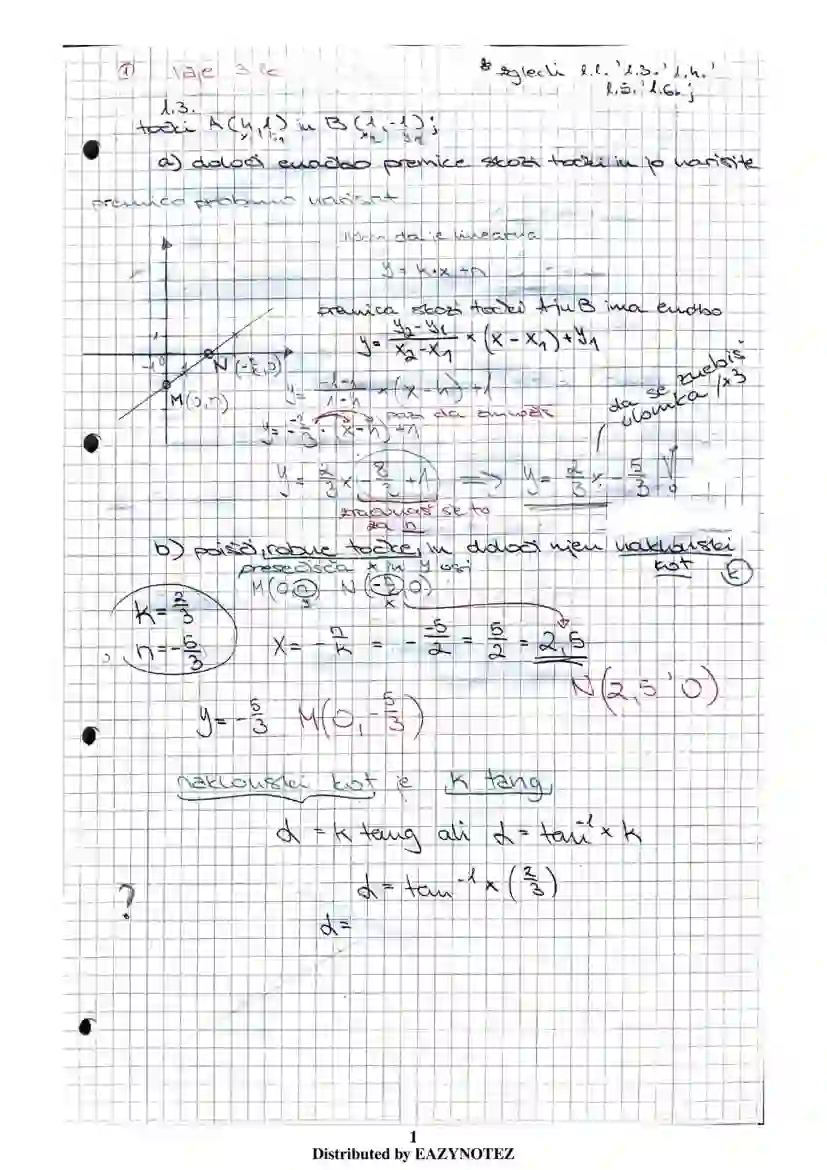 ① Vaje 3
* zgledi 1.2., 1.3., 1.4.,
1.5., 1.6.;
1.3.
točki A(4,1) in B(1,-1);
x₁ y₁ x₂ y₂
a) določi enačbo premice skozi točki in jo narišite
premico probamo narisat
da je linearna
y = k·x+n
premica skozi točki A in B ima enačbo
y = \frac{y₂-y₁}{x₂-x₁} * (x - x₁) + y₁
N(-\frac{n}{k},0)
M(0,n)
y = \frac{-1-1}{1-4} * (x-4)+1
pazi da zmnožiš
da se znebiš
ulomka /*3
y = \frac{-2}{-3} · (x-4)+1
y = \frac{2}{3}x - \frac{8}{3} + 1 => y = \frac{2}{3}x - \frac{5}{3}
zračunaš se to
za n
b) poišči robne točke, in določi njen naklonski
kot
presečišča x in y osi
M(0,n) N(-\frac{n}{k},0)
y x
k = \frac{2}{3}
n = -\frac{5}{3}
x = -\frac{n}{k} = -\frac{-5}{2} = \frac{5}{2} = 2,5
N(2,5 , 0)
y = -\frac{5}{3} M(0, -\frac{5}{3})
naklonski kot je k tang
α = k tang ali α = tan⁻¹ * k
α = tan⁻¹ * (\frac{2}{3})
?
α =
1
Distributed by EAZYNOTEZ